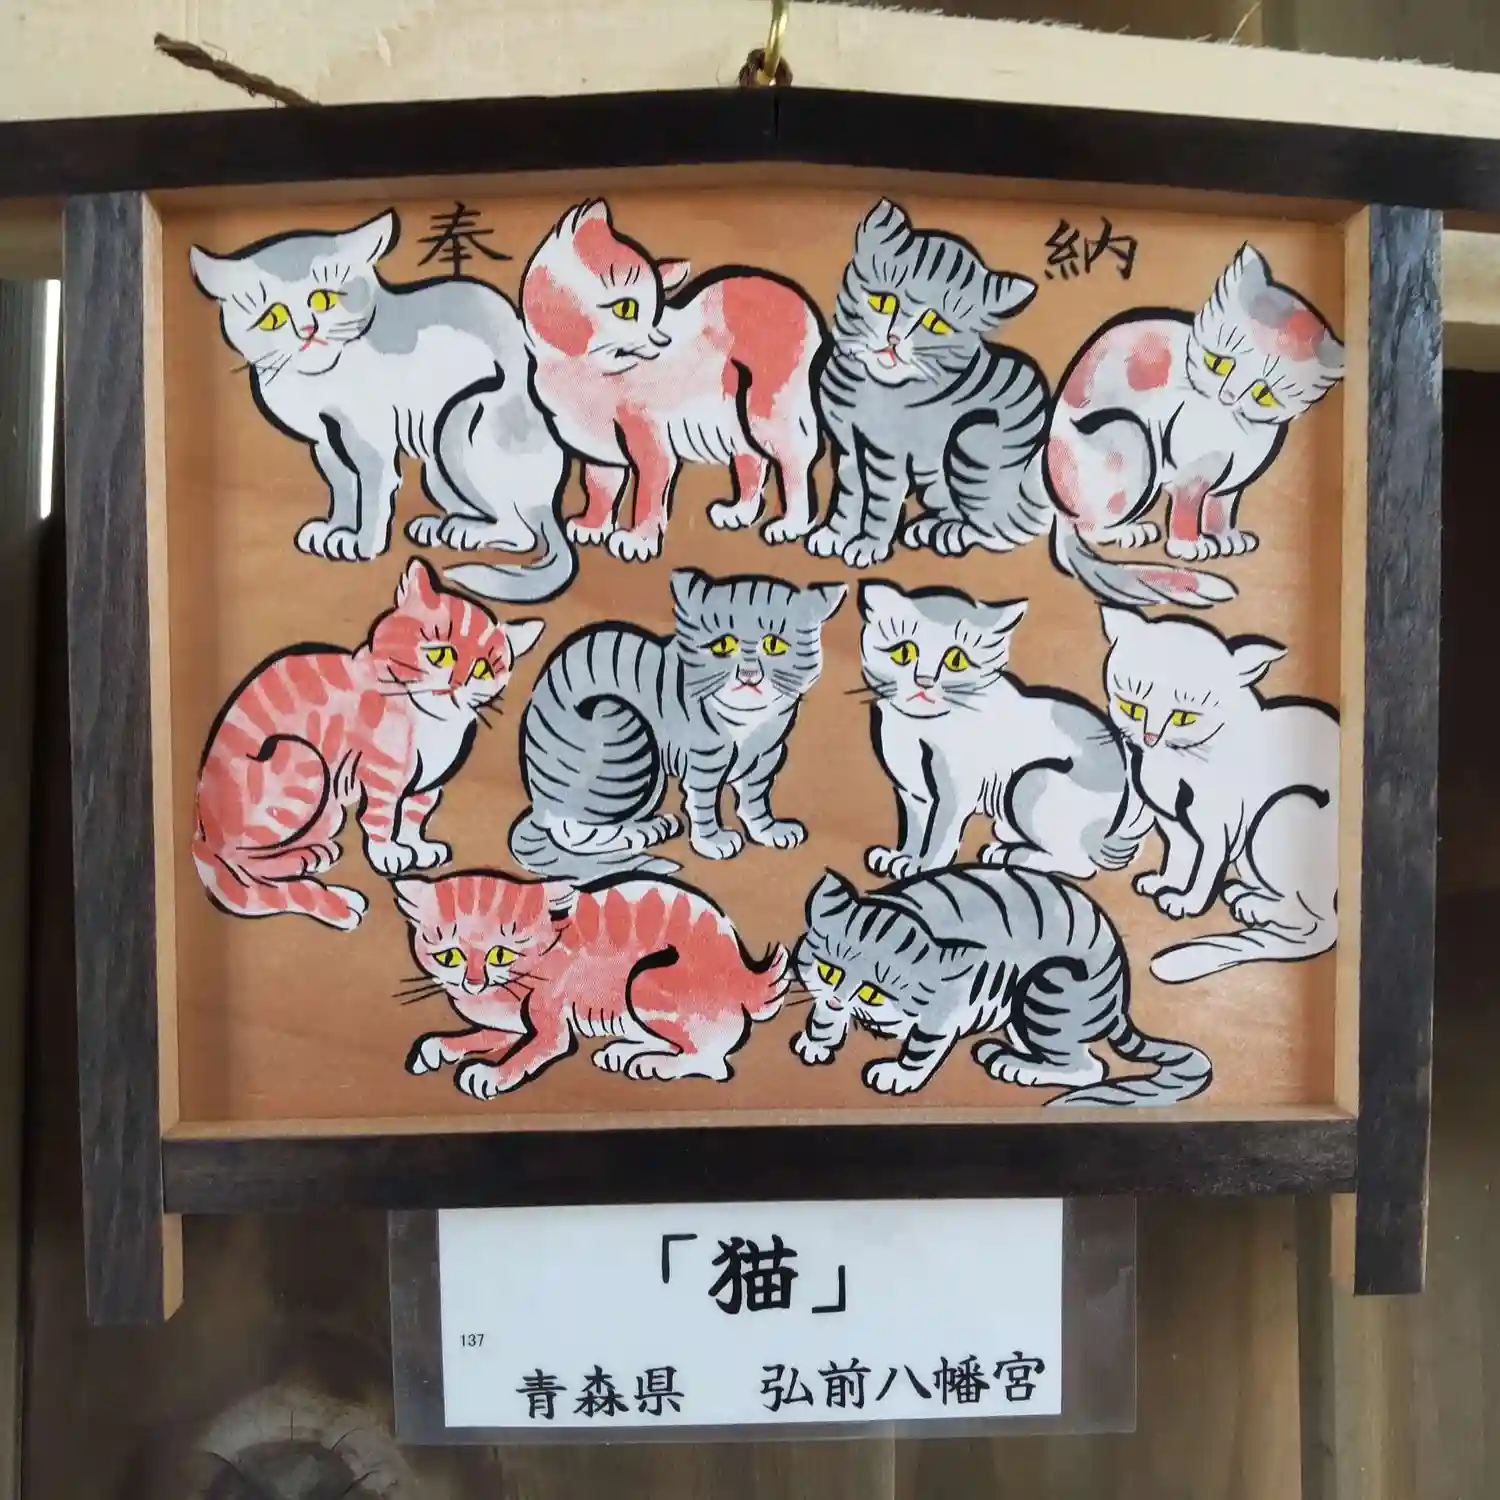 奉納
「猫」
137
青森県 弘前八幡宮